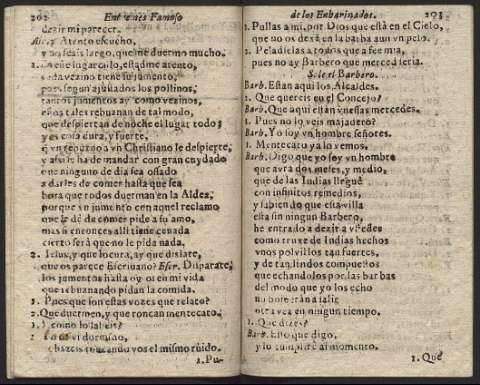 202 Entremes Famoso
dezir mi parecer.
Atento escucho,
y no seais largo, que me duermo mucho.
lugarcillo, estadme atento,
cada vezino tiene su jumento,
pues segun los pollinos,
tantos jumentos ay como vezinos,
estos tales rebuznan de tal modo,
que despiertan de noche el lugar todo;
y es cosa dura, y fuerte,
q̃ vn a vn Christiano le despierte,
y assi se ha de mandar con gran cuydado
que ninguno de dia sea osado
a darles de comer hasta que sea
hora que todos duerman en la Aldea,
porque vn jumento con aquel reclamo
que le dẽ de comer pide a su amo,
mas si entonces alli tiene cenada
cierto será que no le pida nada.
2. Iesus, y que locura, ay que disiate,
que os parece Escriuano? Escr. Disparate;
los jumentos hasta oy en mi vida
que rebuznando pidan la comida.
1. Pues que son estas vozes que relato?
2. Que duermen, y que roncan mentecato.
1. Y como lo sabeis?
2. dormido,
roncando vos el mismo ruido.
1. Pu-
de los Enharinados. 203
1. Pullas a mi, por Dios que està en el Cielo,
que no os dexà en la barba aun vn pelo.
2. Peladielas a todos que a fee mia,
pues no ay Barbero que merced seria.
Sale el Barbero.
Barb. Estan aqui los Alcaldes.
1. Que quereis en el Concejo?
Barb. Que aqui estàn vuessas mercedes.
1. Pues no lo veis majadero?
Barb. Yo soy vn hombre señores.
1. Mentecato ya lo vemos.
Barb. Digo que yo soy vn hombre
que avrà dos meses, y medio,
que de las Indias lleguè
con infinitos remedios,
y sabiendo que esta villa
està sin ningun Barbero,
he entrado a dezir a vstedes
como truxe de Indias hechos
vnos polvillos tan fuertes,
y de tan lindos compuestos
que echandolos por las barbas
del modo que yo los echo
no bolverán a salir
otra vez en ningun tiempo.
1. Que dizes?
Barb. Esto que digo,
y lo cumplirè al momento.
1. Que